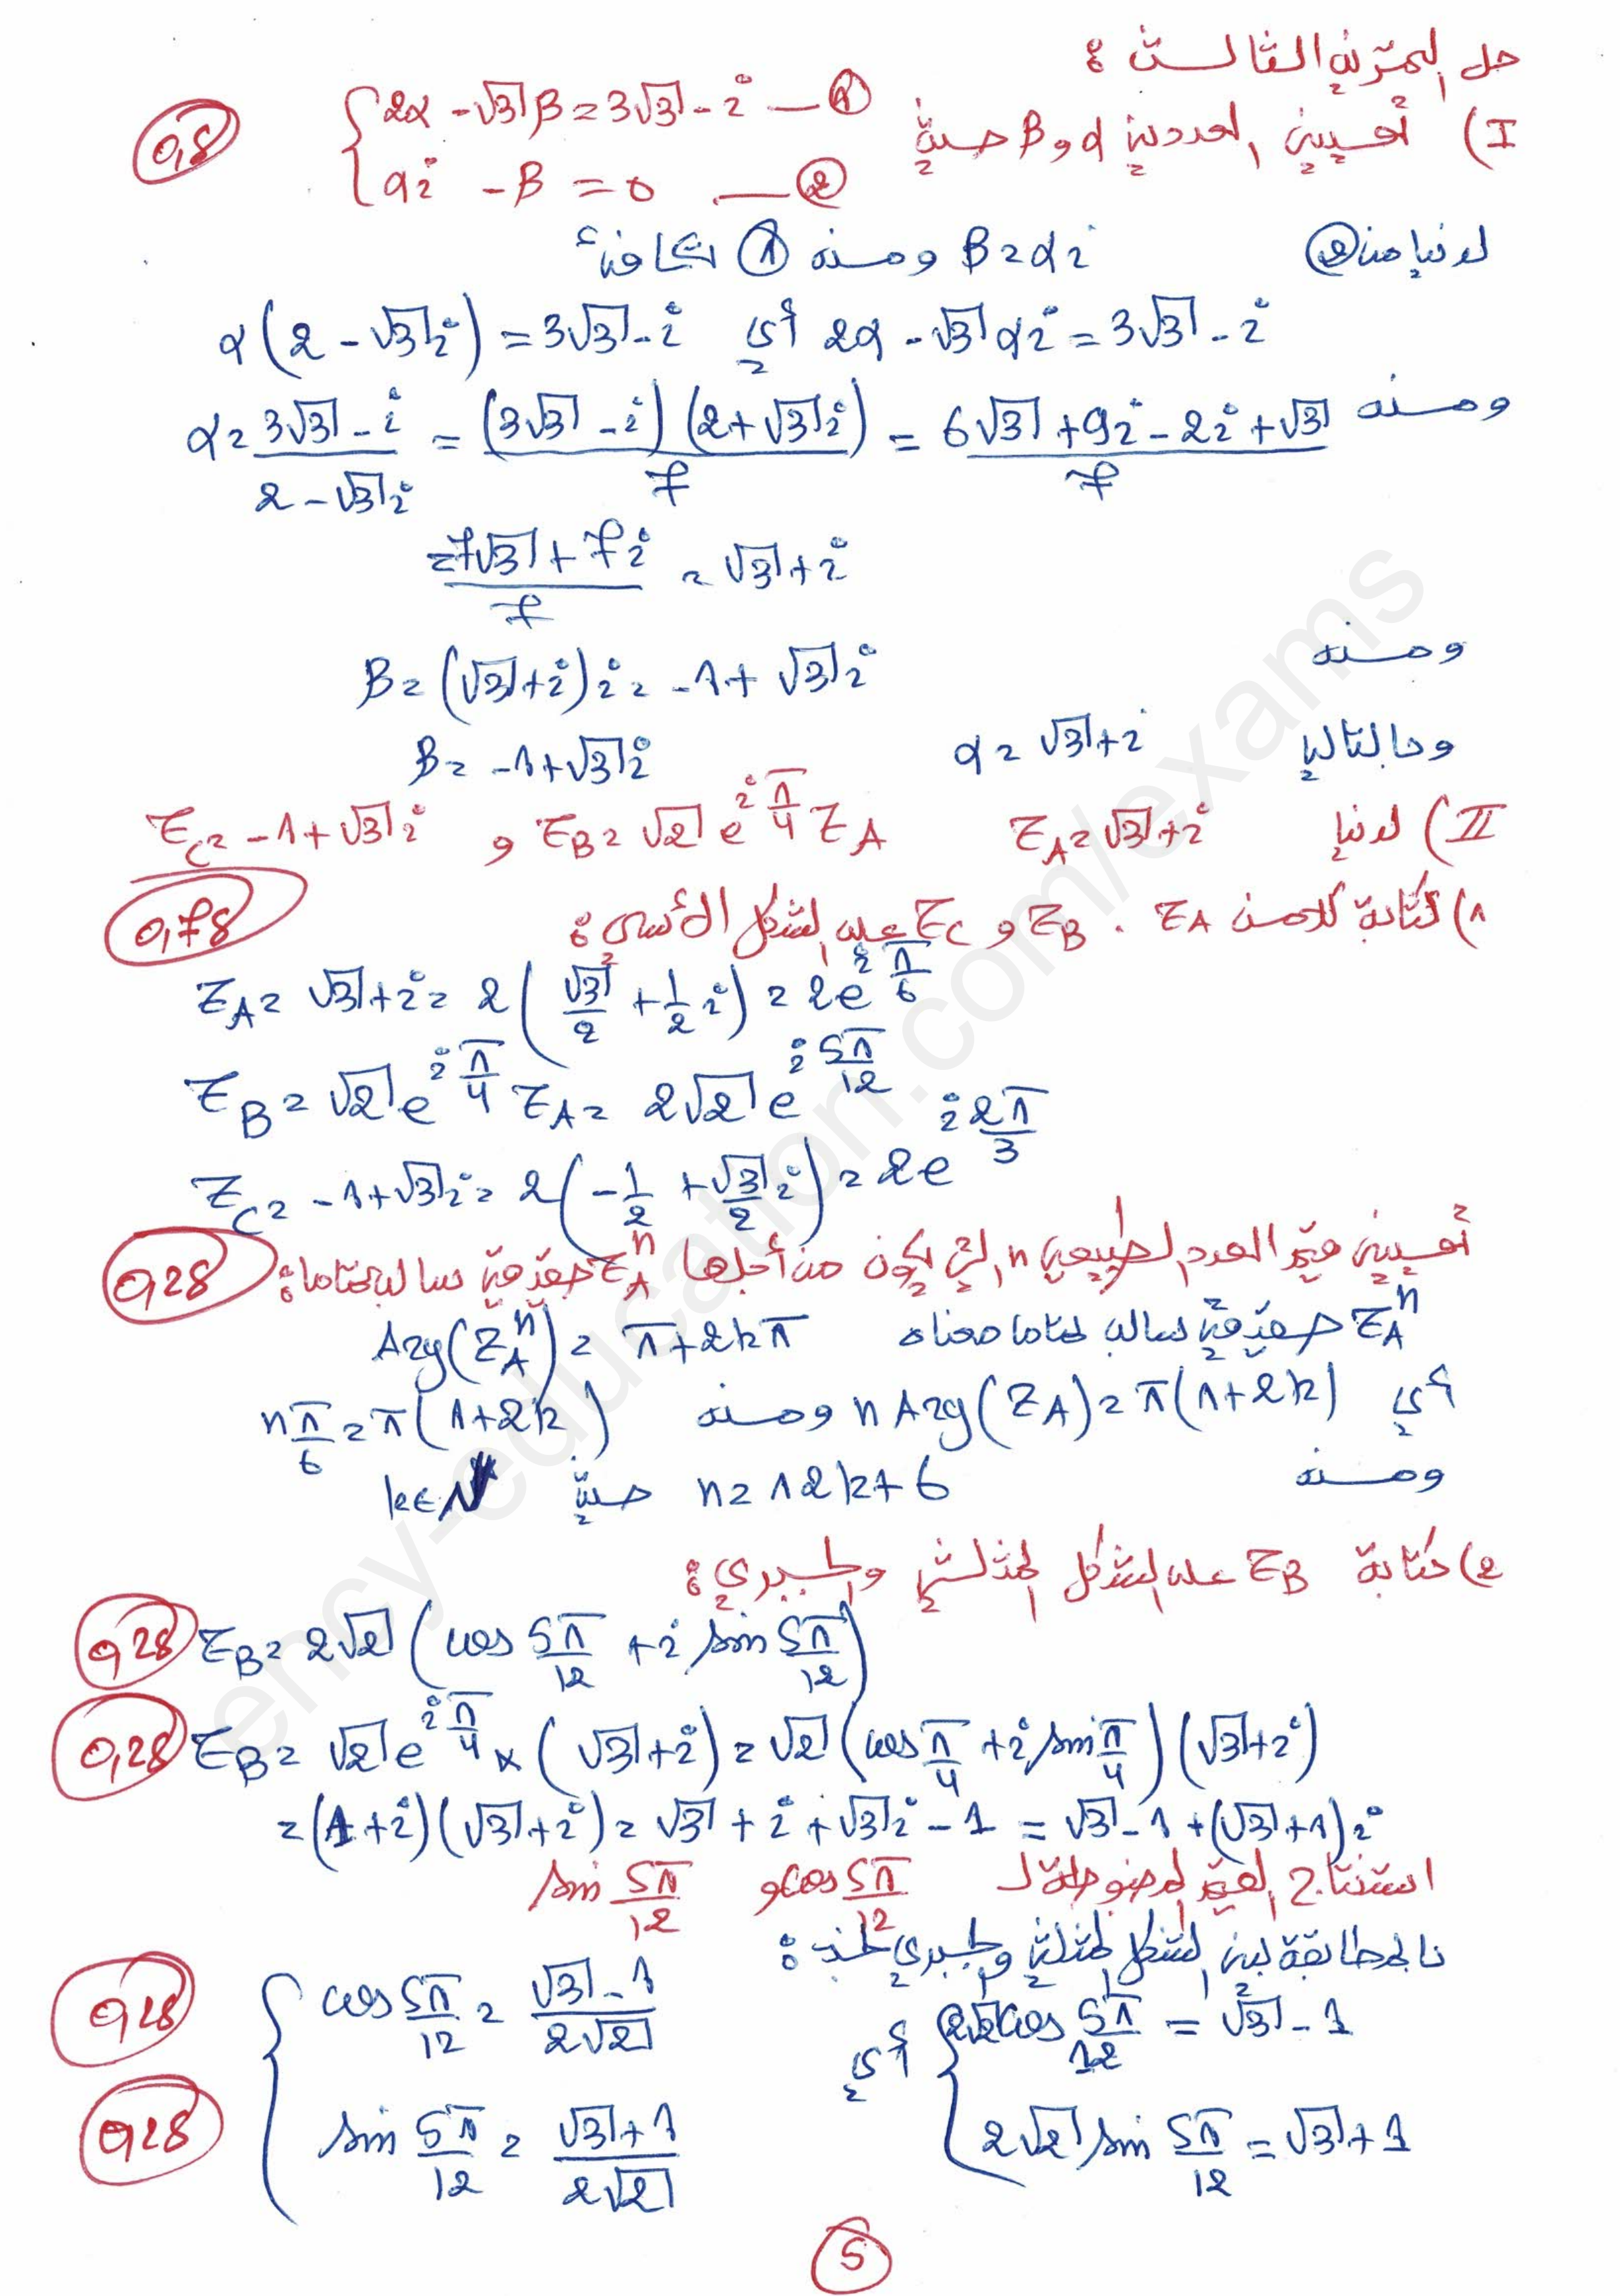 حل التمرين الثالث :
I) تعيين العددين α و β حيث { 2α - √3 β = 3√3 - i — ①
αi - β = 0 — ② 0,5
لدينا من ② β = αi ومنه ① تكافئ
2α - √3 αi = 3√3 - i أي α(2 - √3 i) = 3√3 - i
ومنه α = (3√3 - i)/(2 - √3 i) = (3√3 - i)(2 + √3 i)/7 = (6√3 + 9i - 2i + √3)/7
= (7√3 + 7i)/7 = √3 + i
ومنه β = (√3 + i)i = -1 + √3 i
وبالتالي α = √3 + i β = -1 + √3 i
II) لدينا z_A = √3 + i z_B = √2 e^{i π/4} z_A و z_C = -1 + √3 i
1) كتابة كلا من z_A . z_B و z_C على الشكل الأسي : 0,75
z_A = √3 + i = 2(√3/2 + 1/2 i) = 2e^{i π/6}
z_B = √2 e^{i π/4} z_A = 2√2 e^{i 5π/12}
z_C = -1 + √3 i = 2(-1/2 + √3/2 i) = 2e^{i 2π/3}
تعيين قيم العدد الطبيعي n التي يكون من أجلها z_A^n حقيقي سالب تماما : 0,25
z_A^n حقيقي سالب تماما معناه Arg(z_A^n) = π + 2kπ
أي n Arg(z_A) = π(1 + 2k) ومنه n π/6 = π(1 + 2k)
ومنه n = 12k + 6 حيث k ∈ N
2) كتابة z_B على الشكل المثلثي والجبري :
0,25 z_B = 2√2 (cos 5π/12 + i sin 5π/12)
0,25 z_B = √2 e^{i π/4} × (√3 + i) = √2 (cos π/4 + i sin π/4)(√3 + i)
= (1 + i)(√3 + i) = √3 + i + √3 i - 1 = √3 - 1 + (√3 + 1)i
استنتاج القيم المضبوطة لـ cos 5π/12 و sin 5π/12
بالمطابقة بين الشكل المثلثي والجبري نجد :
{ 2√2 cos 5π/12 = √3 - 1 أي { cos 5π/12 = (√3 - 1)/(2√2) 0,25
2√2 sin 5π/12 = √3 + 1 sin 5π/12 = (√3 + 1)/(2√2) 0,25
5
ency-education.com/exams